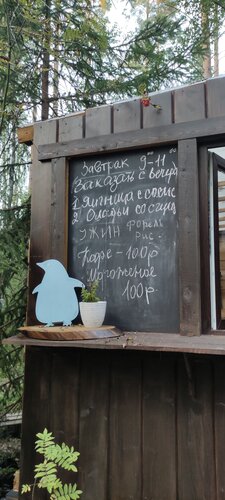 Завтрак 9-11
Заказать с вечера
1. Яичница с сосис
2. Оладьи со сгущ
УЖИН Форель
рис
Кофе - 100р
Мороженое
100р.